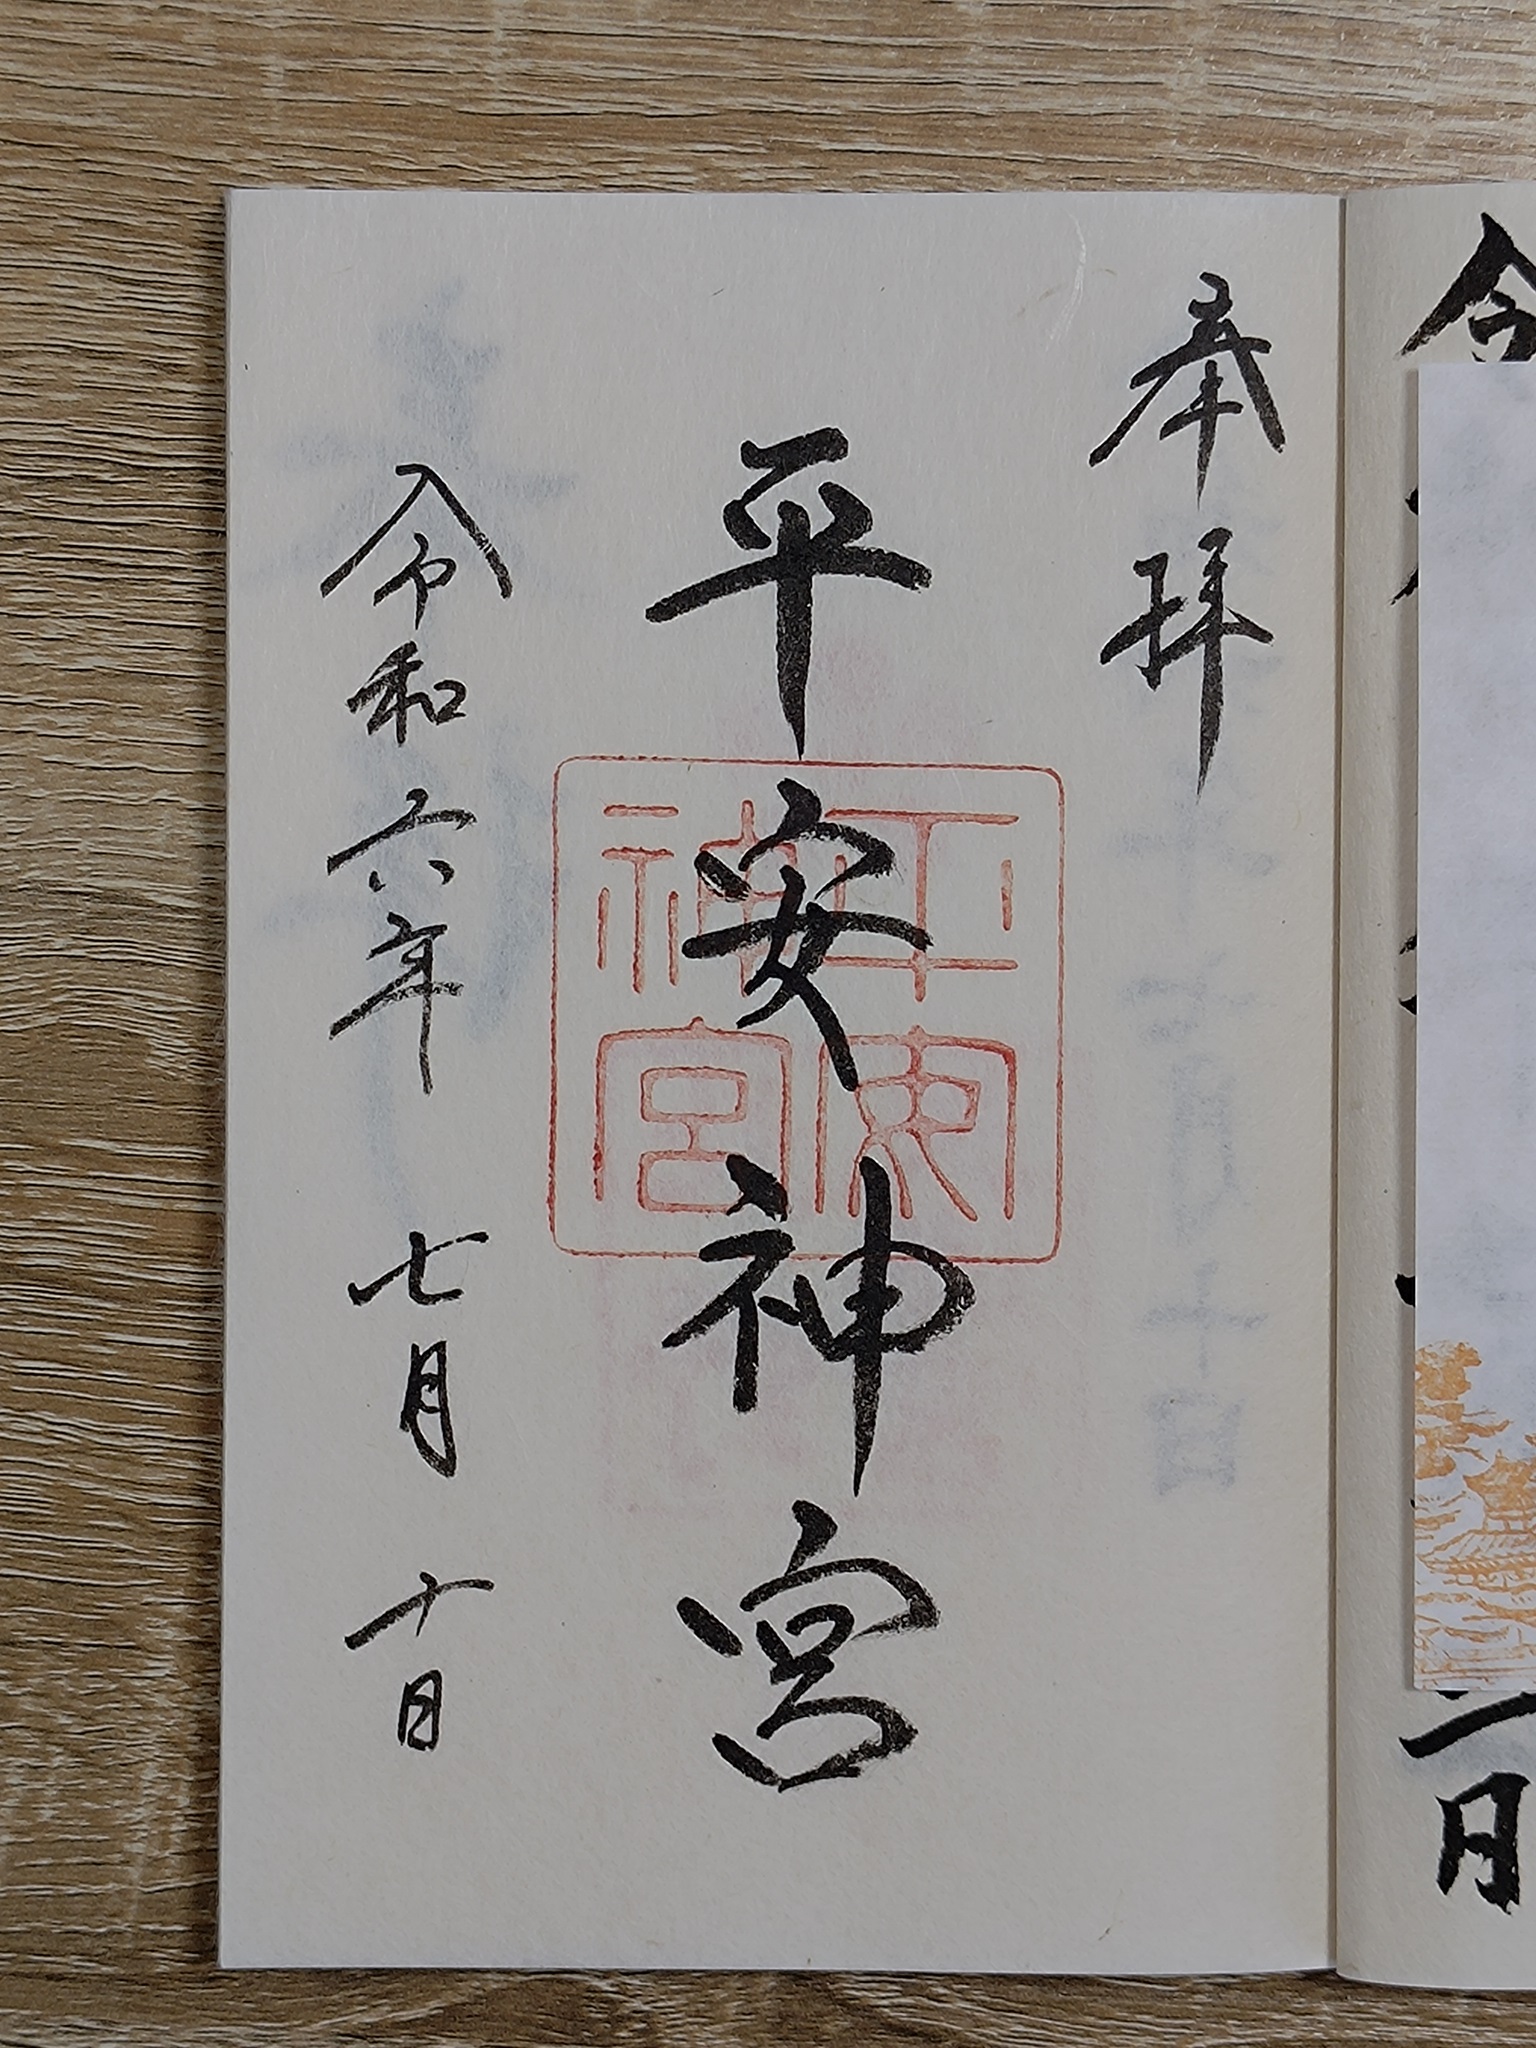 奉拝
平安神宮
平安神宮
令和六年七月十日